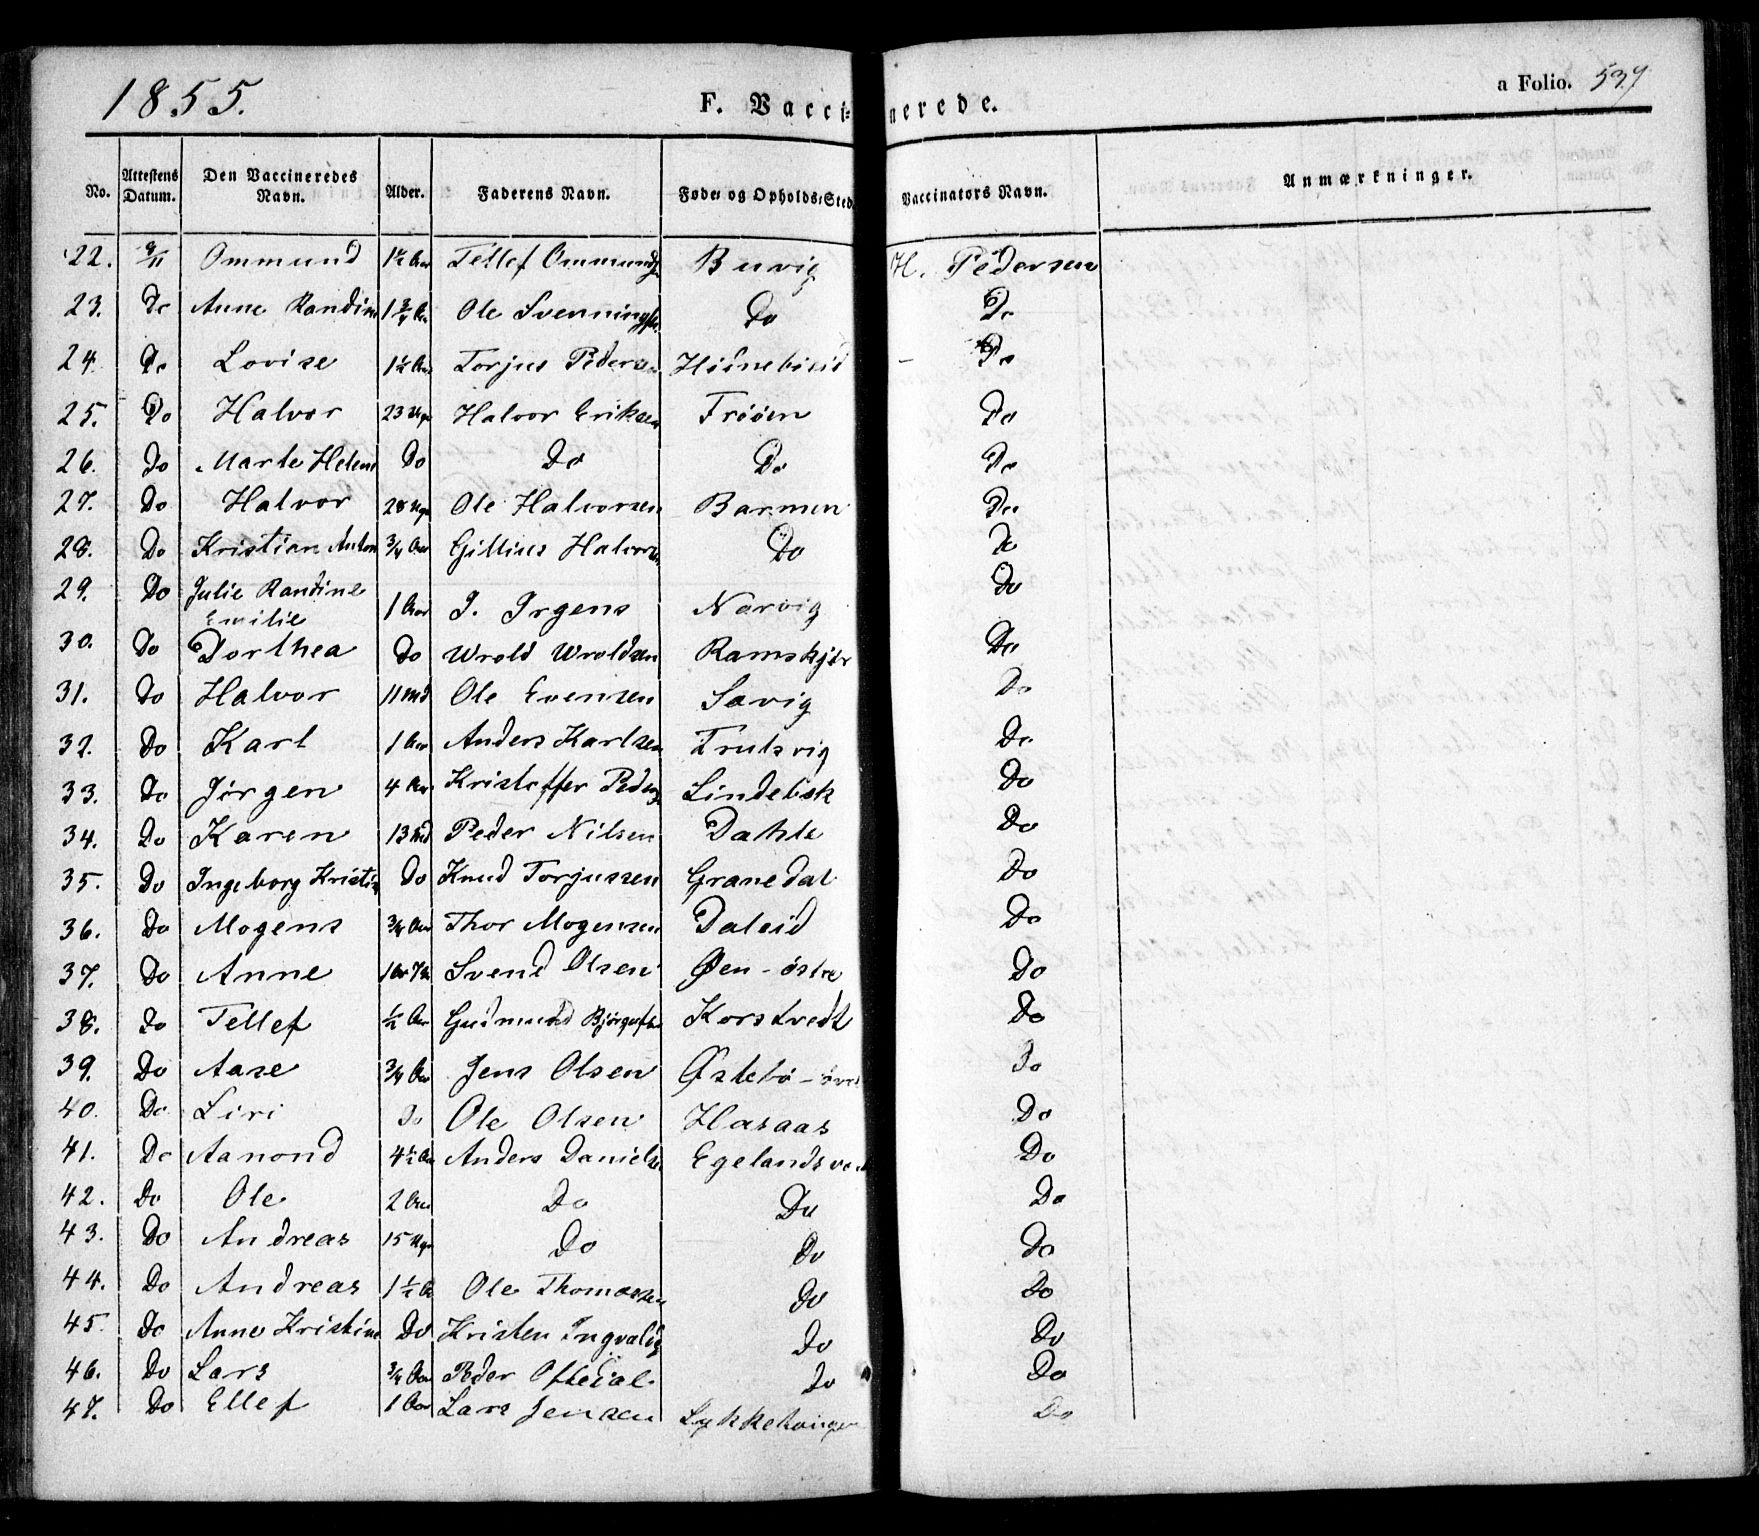 1855.
F. Vaccinerede.
a Folio. 539
No. Attestens Datum. Den Vaccineredes Navn. Alder. Faderens Navn. Føde- og Opholds-Sted Vaccinators Navn. Anmærkninger.
22. 9/11 Ommund 1½ Aar Tellef Ommunds Buvig H. Pedersen
23. Do Anne Randine 1¾ Aar Ole Svennings Do Do
24. Do Lovise 1½ Aar Torjus Pedersen - Do
25. Do Halvor 23 Uger Halvor Eriksen Trööen Do
26. Do Marte Helene Do Do Do Do
27. Do Halvor 28 Uger Ole Halvorsen Barmen Do
28. Do Kristian Anton ¾ Aar Gillius Halvorsen Do Do
29. Do Julie Randine Emilie 1 Aar J. Irgens Narvig Do
30. Do Dorthea Do Wrold Wroldsen Ramskjær Do
31. Do Halvor 11 Md Ole Evensen Savig Do
32. Do Karl 1 Aar Anders Karlsen Trulsvig Do
33. Do Jörgen 4 Aar Kristoffer Peders Lindebsk Do
34. Do Karen 13 Md Peder Nilsen Dahle Do
35. Do Ingeborg Kristin Do Knud Torjussen Granedal Do
36. Do Mogens ¾ Aar Thor Mogensen Daleid Do
37. Do Anne Svend Olsen Øen - östre Do
38. Do Tellef ½ Aar Gudmund Björgufs Korstvedt Do
39. Do Aase ¾ Aar Jens Olsen Østebö - övre Do
40. Do Siri Do Ole Olsen Hasaas Do
41. Do Aanond 4½ Aar Anders Danielsen Egelandsv Do
42. Do Ole 2 Aar Do Do Do
43. Do Andreas 15 Uger Do Do Do
44. Do Andreas 1½ A Ole Thomassen Do Do
45. Do Anne Kristine Do Kristen Ingvalds Do Do
46. Do Lars ¾ Aar Peder Oftedal Do Do
47. Do Ellef 1 Aar Lars Jensen Do